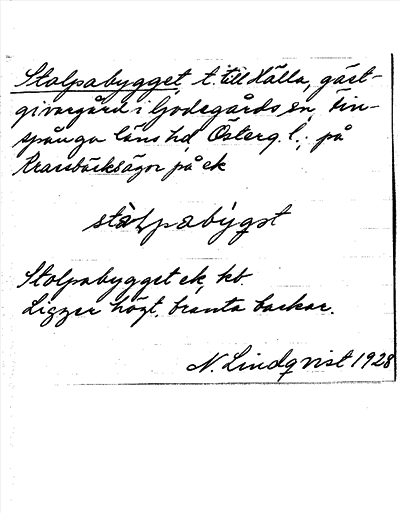 Stolpabygget, t. till Hälla, gäst-
givargård i Godegårds sn, Fin-
spånga läns hd, Österg. l.; på
Krassbäcksägor på ek
stòlpabýgət
Stolpabygget ek. kt.
Ligger högt, branta backar.
N. Lindqvist 1928